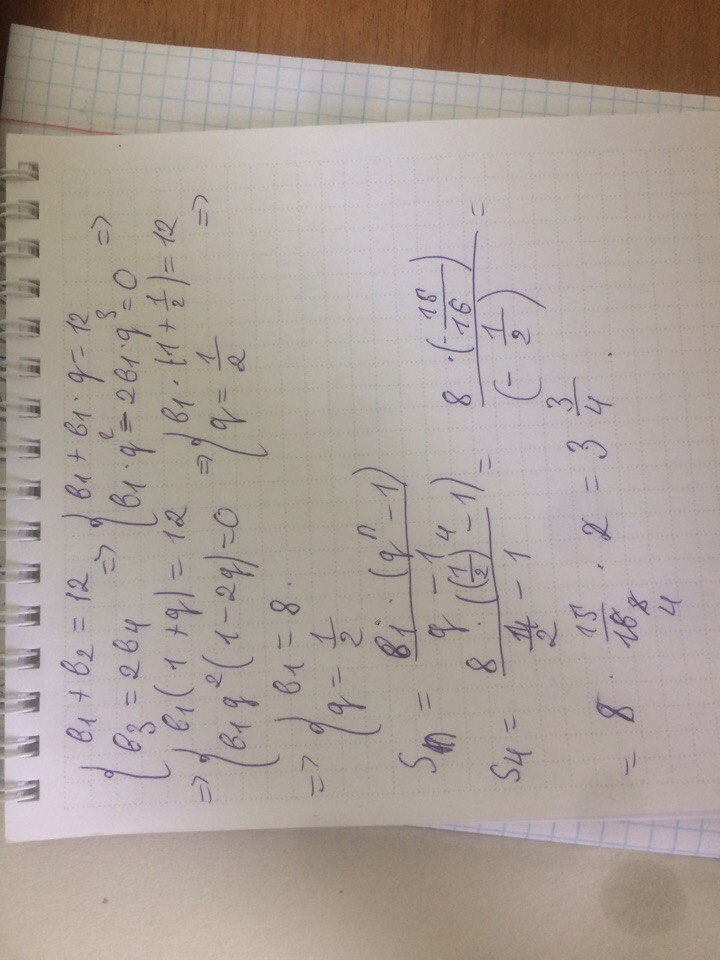 { b1 + b2 = 12 => { b1 + b1 · q = 12 =>
{ b3 = 2b4 { b1 · q² - 2b1 · q³ = 0
=> { b1(1 + q) = 12 => { b1 · (1 + 1/2) = 12 =>
{ b1q²(1 - 2q) = 0 { q = 1/2
=> { b1 = 8.
{ q = 1/2
Sn = b1 · (qⁿ - 1) / q - 1
S4 = 8 · ((1/2)⁴ - 1) / 1/2 - 1 = 8 · (- 15/16) / (- 1/2) =
= 8 · 15/16 · 2 = 3 3/4.